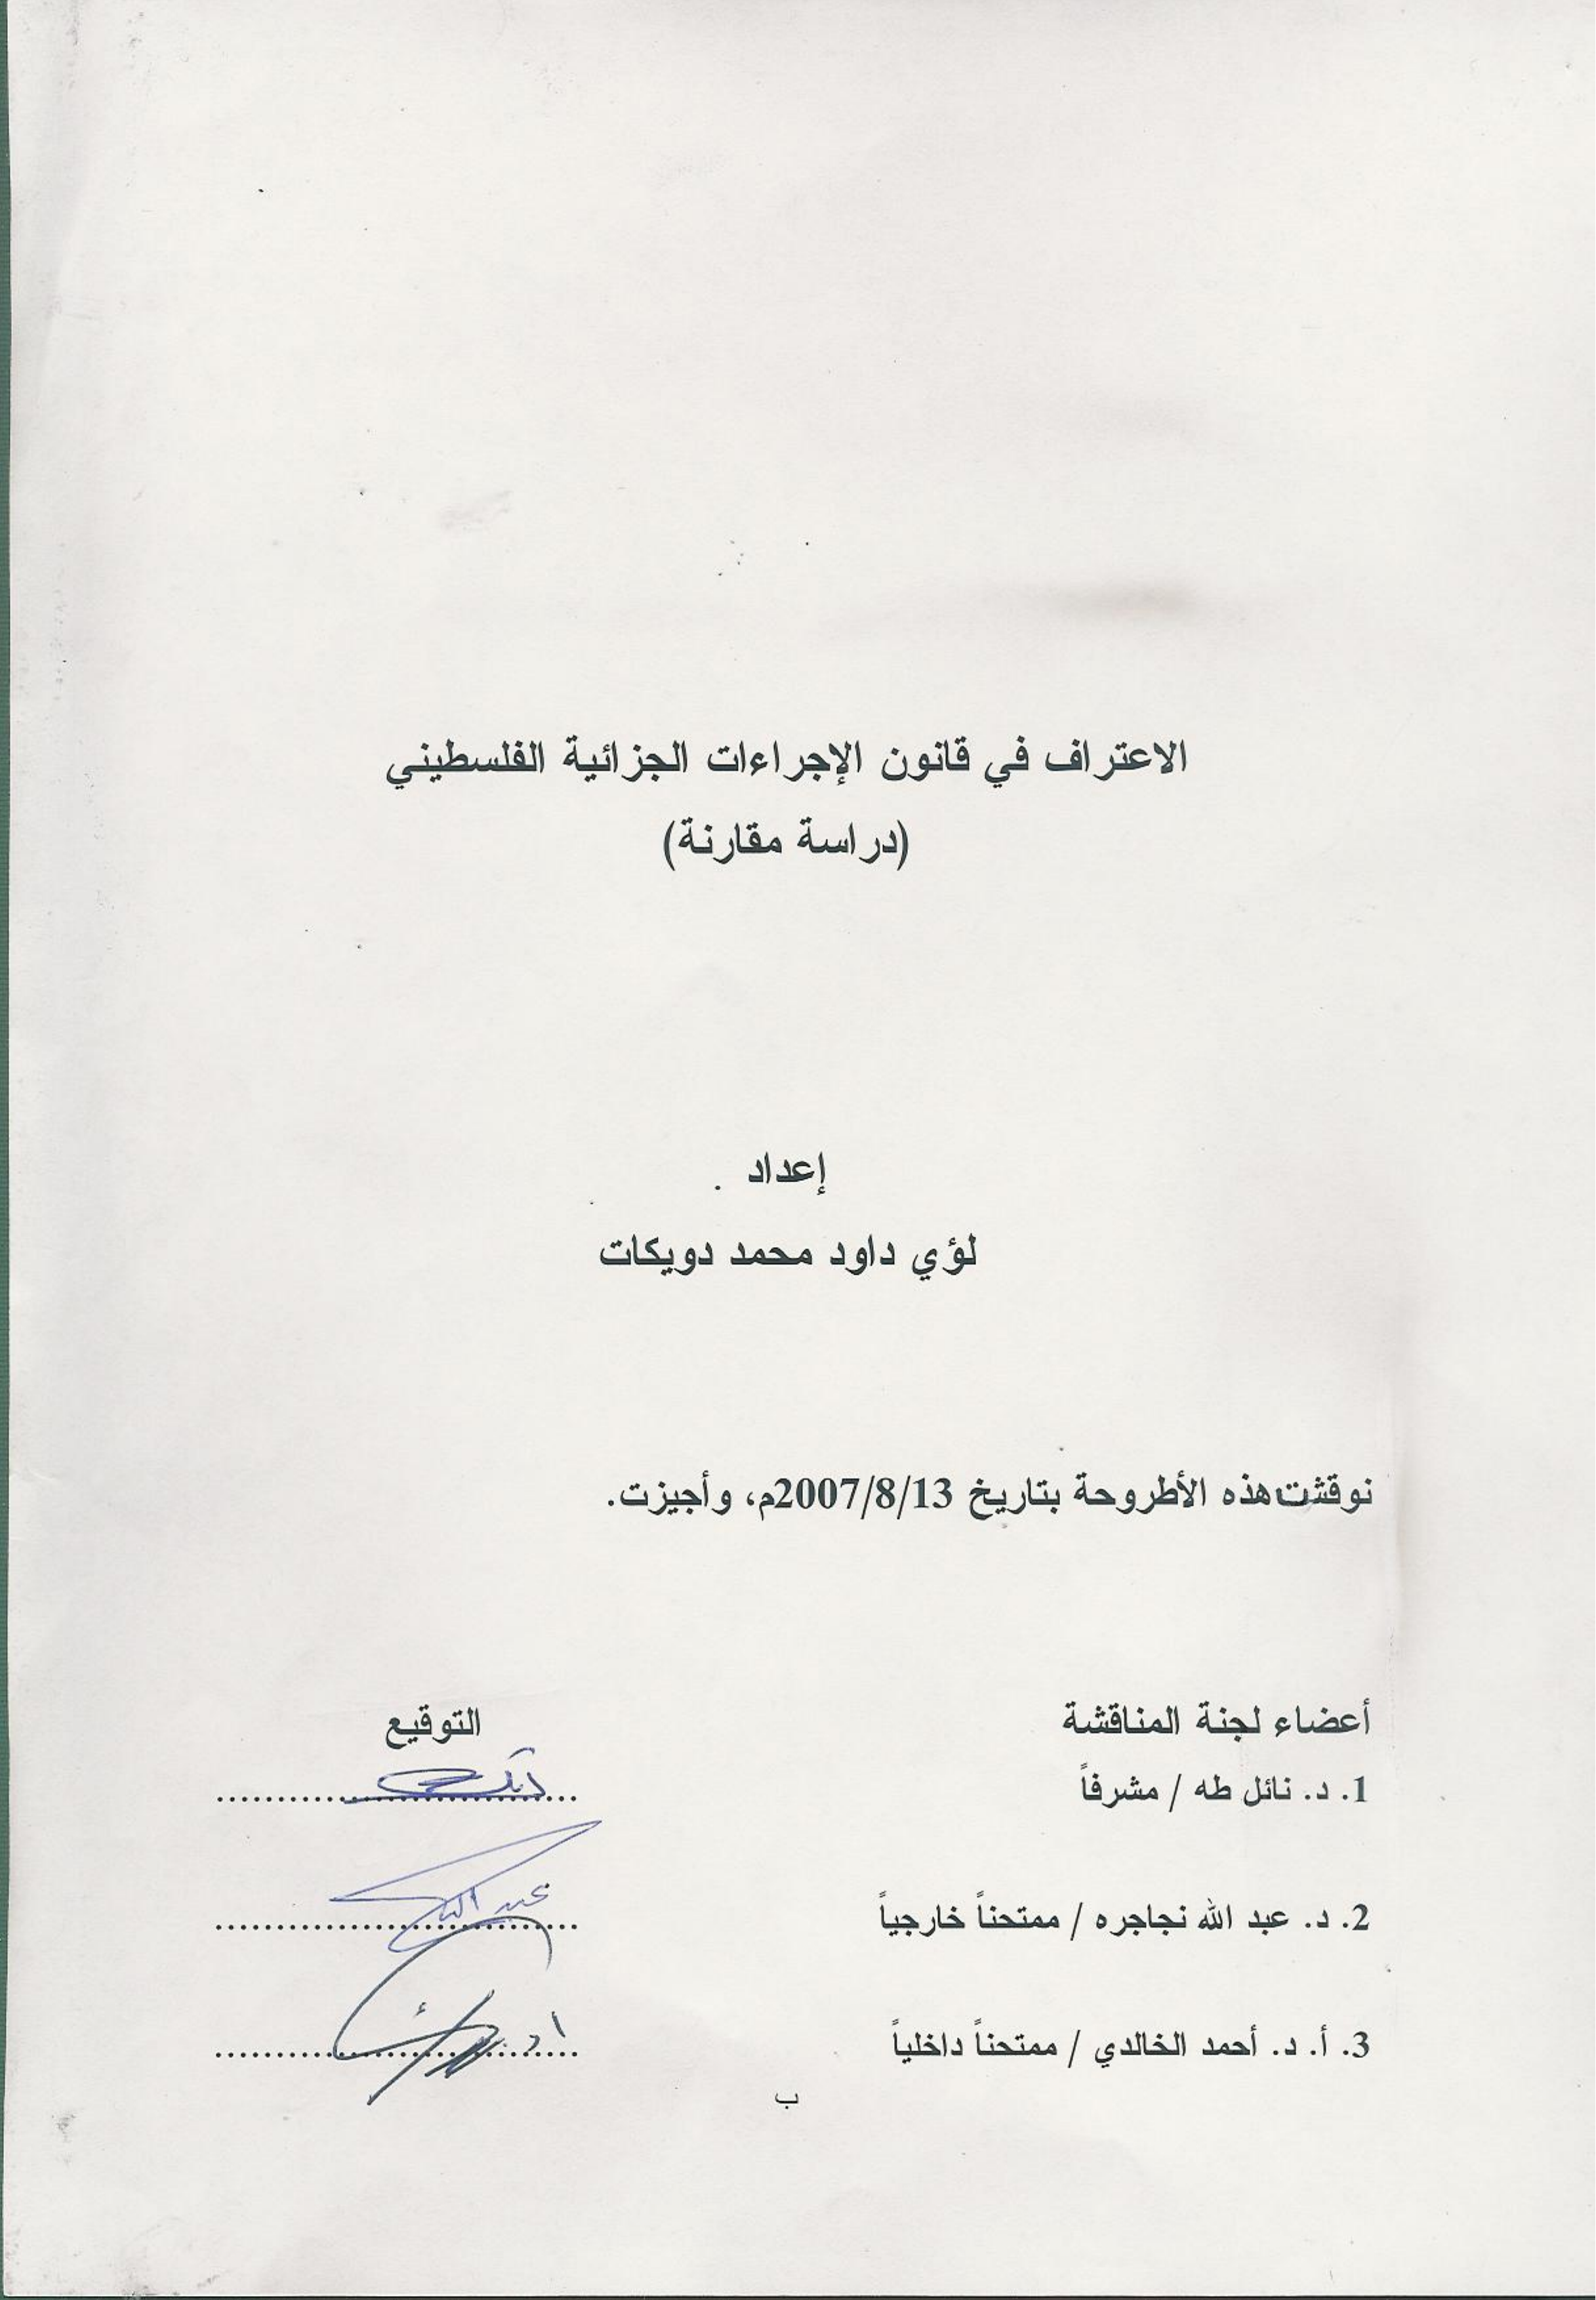 الاعتراف في قانون الإجراءات الجزائية الفلسطيني
(دراسة مقارنة)
إعداد
لؤي داود محمد دويكات
نوقشت هذه الأطروحة بتاريخ 2007/8/13م، وأجيزت.
أعضاء لجنة المناقشة التوقيع
1. د. نائل طه / مشرفاً ..............................
2. د. عبد الله نجاجره / ممتحناً خارجياً ..............................
3. أ. د. أحمد الخالدي / ممتحناً داخلياً ..............................
ب